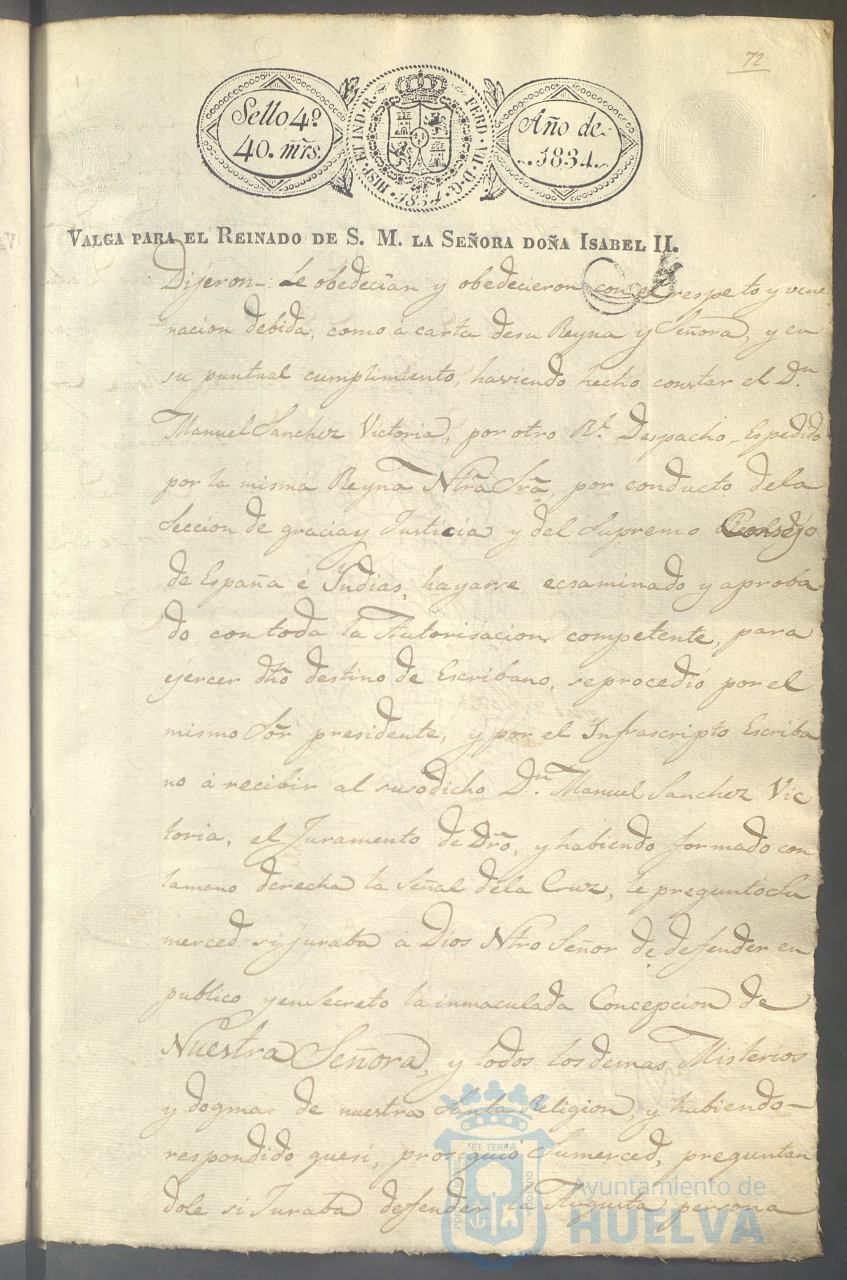 72
Sello 4º
40. mrs.
HISP. ET IND. R.
FERD. VII. D. G.
1834
Año de
1834.
VALGA PARA EL REINADO DE S. M. LA SEÑORA DOÑA ISABEL II.
Dijeron: Le obedecian y obedecieron con el respeto y vene
racion debida, como á carta desu Reyna y Señora, y en
su puntual cumplimiento, haviendo hecho constar el Dn
Manuel Sanchez Victoria, por otro Rl. Despacho, Espedido
por la misma Reyna Ntrã Srã, por conducto dela
Seccion de gracia y Justicia y del Supremo Consejo
de España é Yndias, hayarse ecsaminado y aproba
do con toda la Autorisacion competente, para
ejercer dho destino de Escribano, seprocedió por el
mismo Sor presidente, y por el Infrascripto Escriba
no á recibir al susodicho Dn Manuel Sanchez Vic
toria, el Juramento de Dro, y habiendo formado con
lamano derecha la Señal dela Cruz, le preguntó Su
merced si juraba á Dios Ntro Señor de defender en
publico y en Secreto la inmaculada Concepcion de
Nuestra Señora, y todos los demas Misterios
y dogmas de nuestra Santa Religion, y habiendo
respondido quesi, prosiguió Sumerced, preguntan
dole si Juraba defender la Augusta persona
ET TERRÆ
Ayuntamiento de
HUELVA